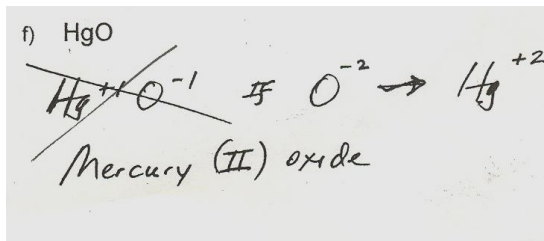 f) HgO
Hg⁺¹ O⁻¹ If O⁻² → Hg⁺²
Mercury (II) oxide